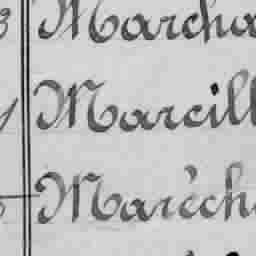 Marcha
Marcill
Maréch